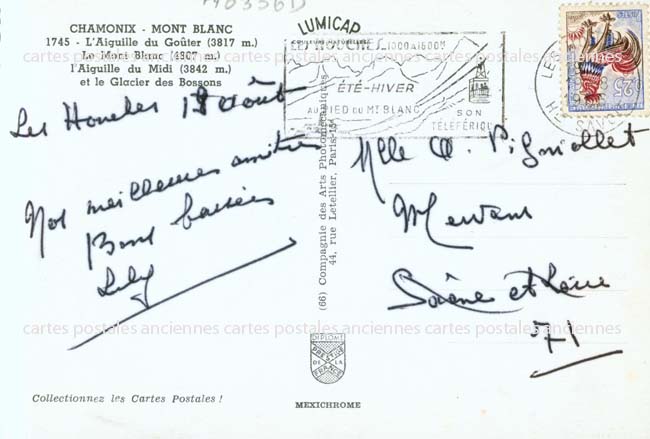 CHAMONIX - MONT BLANC
1745 - L'Aiguille du Goûter (3817 m.)
Le Mont Blanc (4807 m.)
l'Aiguille du Midi (3842 m.)
et le Glacier des Bossons
Les Houches 13 Août
Nos meilleures amitiés
Bons baisers
Lily
LUMICAP
LES HOUCHES 1000 A 1800M
ÉTÉ-HIVER
AU PIED DU MT BLANC
SON
TÉLÉFÉRIQUE
0,25
Mlle
Mervans
Saône et Loire
71
(66) Compagnie des Arts Photomécaniques
44, rue Letellier, Paris-15e
cartes postales anciennes cartes postales anciennes cartes postales anciennes
DIPLOME
PRESTIGE
DE LA
FRANCE
Collectionnez les Cartes Postales !
MEXICHROME